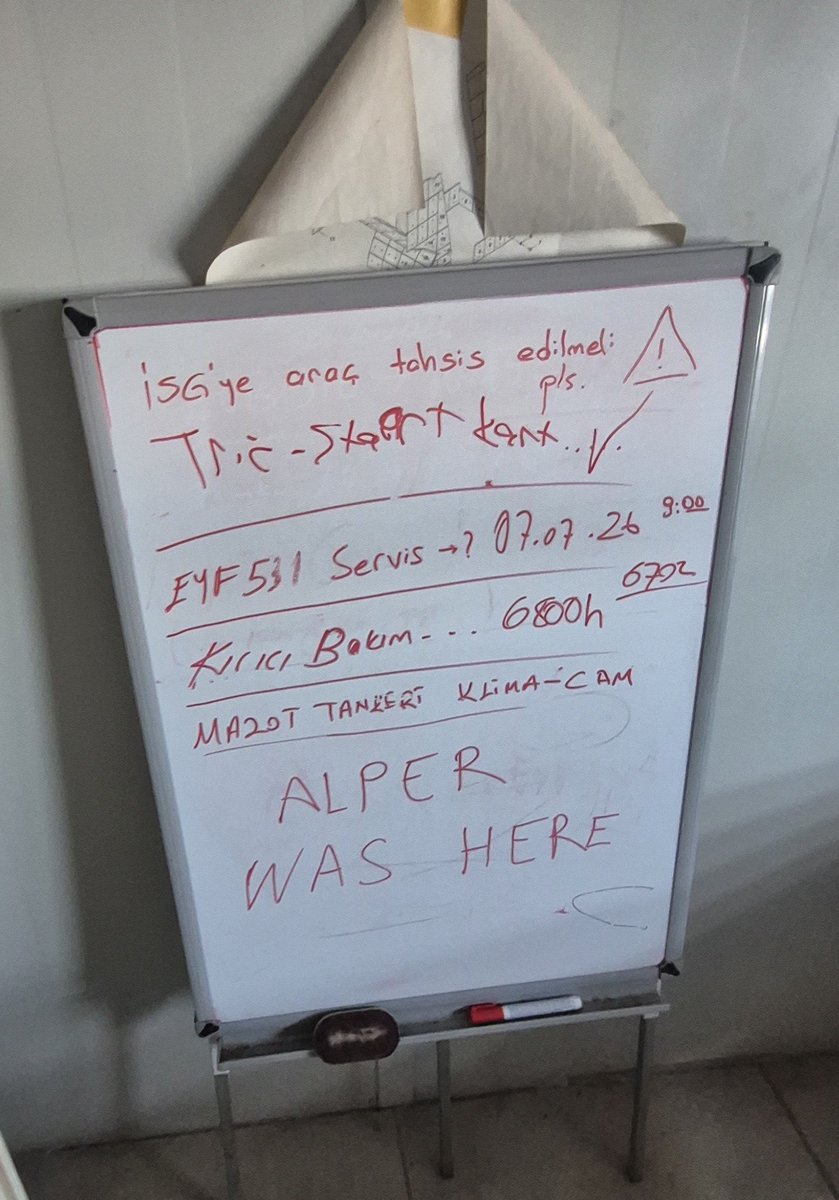 İSG'ye araç tahsis edilmeli
pls.
!
Start kart..
EYF 531 Servis →? 07.07.26 9:00
Kırıcı Bakım--.. 6800h 6792
MAZOT TANKERİ KLİMA-CAM
ALPER
WAS HERE